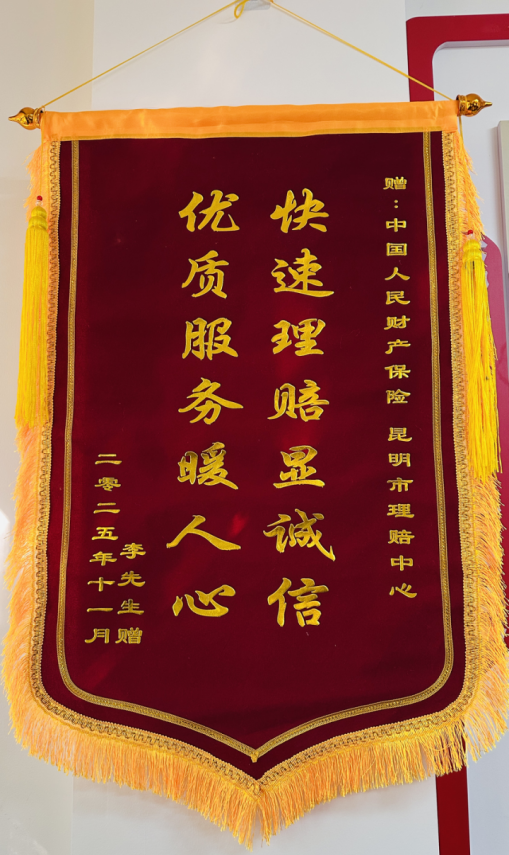 赠：中国人民财产保险 昆明市理赔中心
快速理赔显诚信
优质服务暖人心
李先生赠
二零二五年十一月